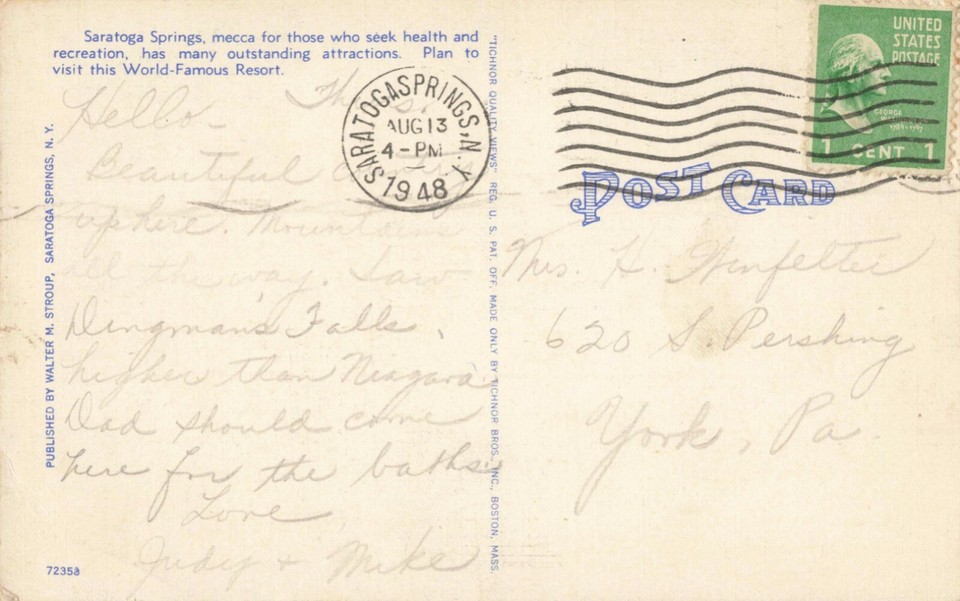 Saratoga Springs, mecca for those who seek health and
recreation, has many outstanding attractions. Plan to
visit this World-Famous Resort.
PUBLISHED BY WALTER M. STROUP, SARATOGA SPRINGS, N. Y.
72353
"TICHNOR QUALITY VIEWS" REG. U. S. PAT. OFF. MADE ONLY BY TICHNOR BROS., INC., BOSTON, MASS.
SARATOGA SPRINGS, N.Y.
AUG 13
4-PM
1948
UNITED
STATES
POSTAGE
GEORGE
WASHINGTON
1 CENT 1
POST CARD
Hello- Thurs.
Beautiful
up here. Mountains
all the way. Saw
Dingman's Falls,
higher than Niagara
Dad should come
here for the baths.
Love
Judy + Mike
Mrs. H.
620 S. Pershing
York, Pa.